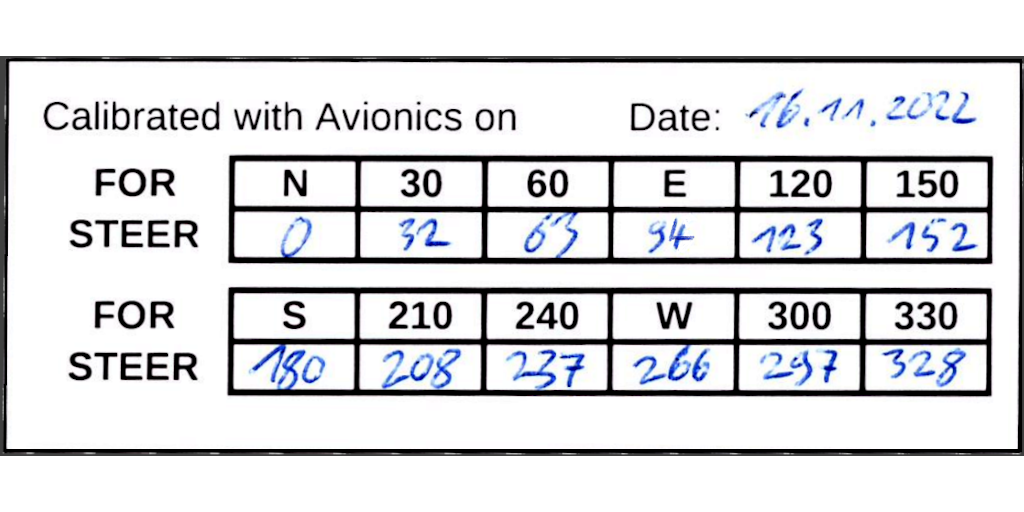 Calibrated with Avionics on Date: 16.11.2022
FOR N 30 60 E 120 150
STEER 0 32 63 94 123 152
FOR S 210 240 W 300 330
STEER 180 208 237 266 297 328